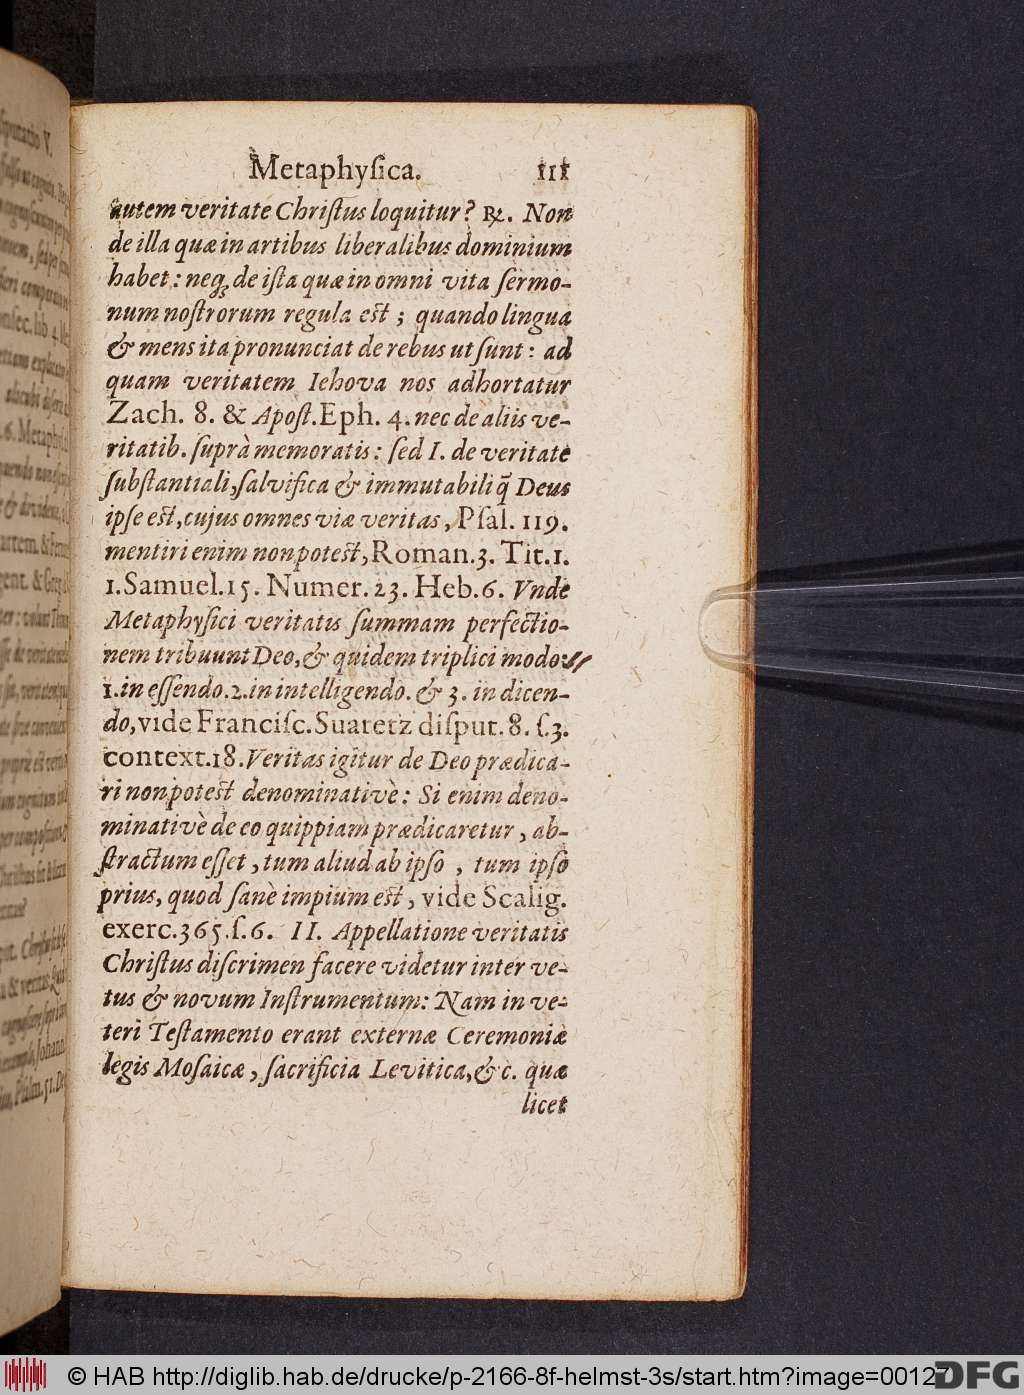 Metaphyſica. 111
autem veritate Chriſtus loquitur? ℞. Non
de illa quæ in artibus liberalibus dominium
habet: neq; de iſta quæ in omni vita ſermo-
num noſtrorum regula eſt; quando lingua
& mens ita pronunciat de rebus ut ſunt: ad
quam veritatem Iehova nos adhortatur
Zach. 8. & Apoſt. Eph. 4. nec de aliis ve-
ritatib. ſuprà memoratis: ſed I. de veritate
ſubſtantiali, ſalvifica & immutabili q̃ Deus
ipſe eſt, cujus omnes viæ veritas, Pſal. 119.
mentiri enim non poteſt, Roman. 3. Tit. 1.
1. Samuel. 15. Numer. 23. Heb. 6. Vnde
Metaphyſici veritatis ſummam perfectio-
nem tribuunt Deo, & quidem triplici modo:
1. in eſſendo. 2. in intelligendo. & 3. in dicen-
do, vide Franciſc. Suaretz diſput. 8. ſ. 3.
context. 18. Veritas igitur de Deo prædica-
ri non poteſt denominativè: Si enim deno-
minativè de eo quippiam prædicaretur, ab-
ſtractum eſſet, tum aliud ab ipſo, tum ipſo
prius, quod ſanè impium eſt, vide Scalig.
exerc. 365. ſ. 6. II. Appellatione veritatis
Chriſtus diſcrimen facere videtur inter ve-
tus & novum Inſtrumentum: Nam in ve-
teri Teſtamento erant externæ Ceremoniæ
legis Moſaicæ, ſacrificia Levitica, &c. quæ
licet
© HAB http://diglib.hab.de/drucke/p-2166-8f-helmst-3s/start.htm?image=00127
DFG